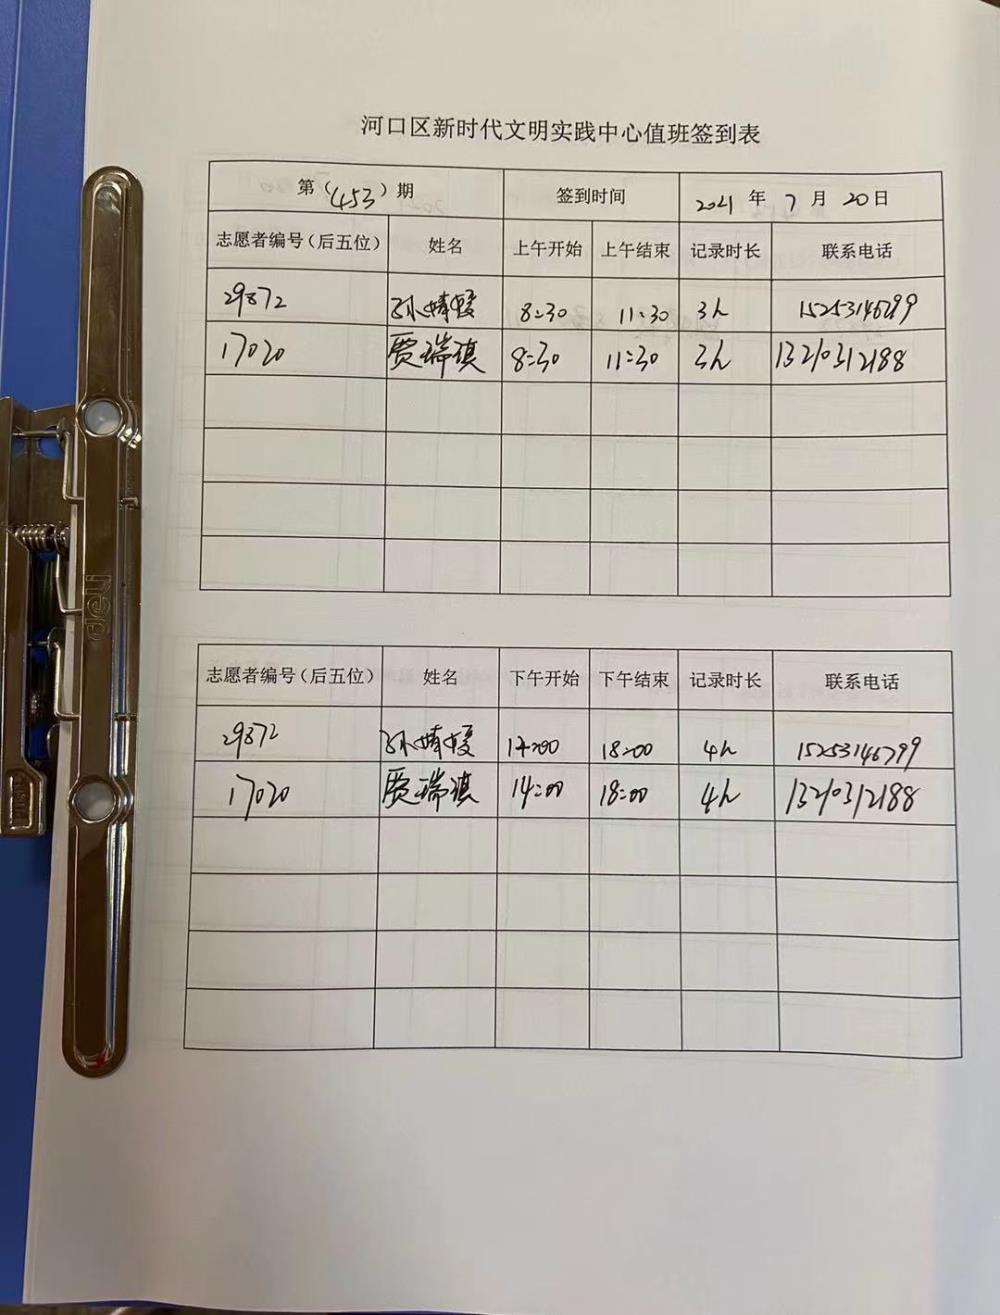 河口区新时代文明实践中心值班签到表
第（453）期 签到时间 2021 年 7 月 20 日
志愿者编号（后五位） 姓名 上午开始 上午结束 记录时长 联系电话
29872 孙婧媛 8:30 11:30 3h 15253146799
17020 贾瑞琪 8:30 11:30 3h 13210312188
志愿者编号（后五位） 姓名 下午开始 下午结束 记录时长 联系电话
29872 孙婧媛 14:00 18:00 4h 15253146799
17020 贾瑞琪 14:00 18:00 4h 13210312188
deli